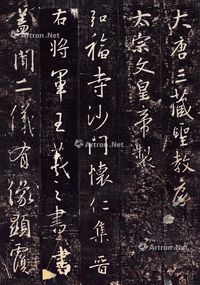 大唐三藏聖教序
太宗文皇帝製
弘福寺沙門懷仁集晋
右將軍王羲之書
蓋聞二儀有像顯覆
Art.Net
Art.Net
Art.Net
Art.Net